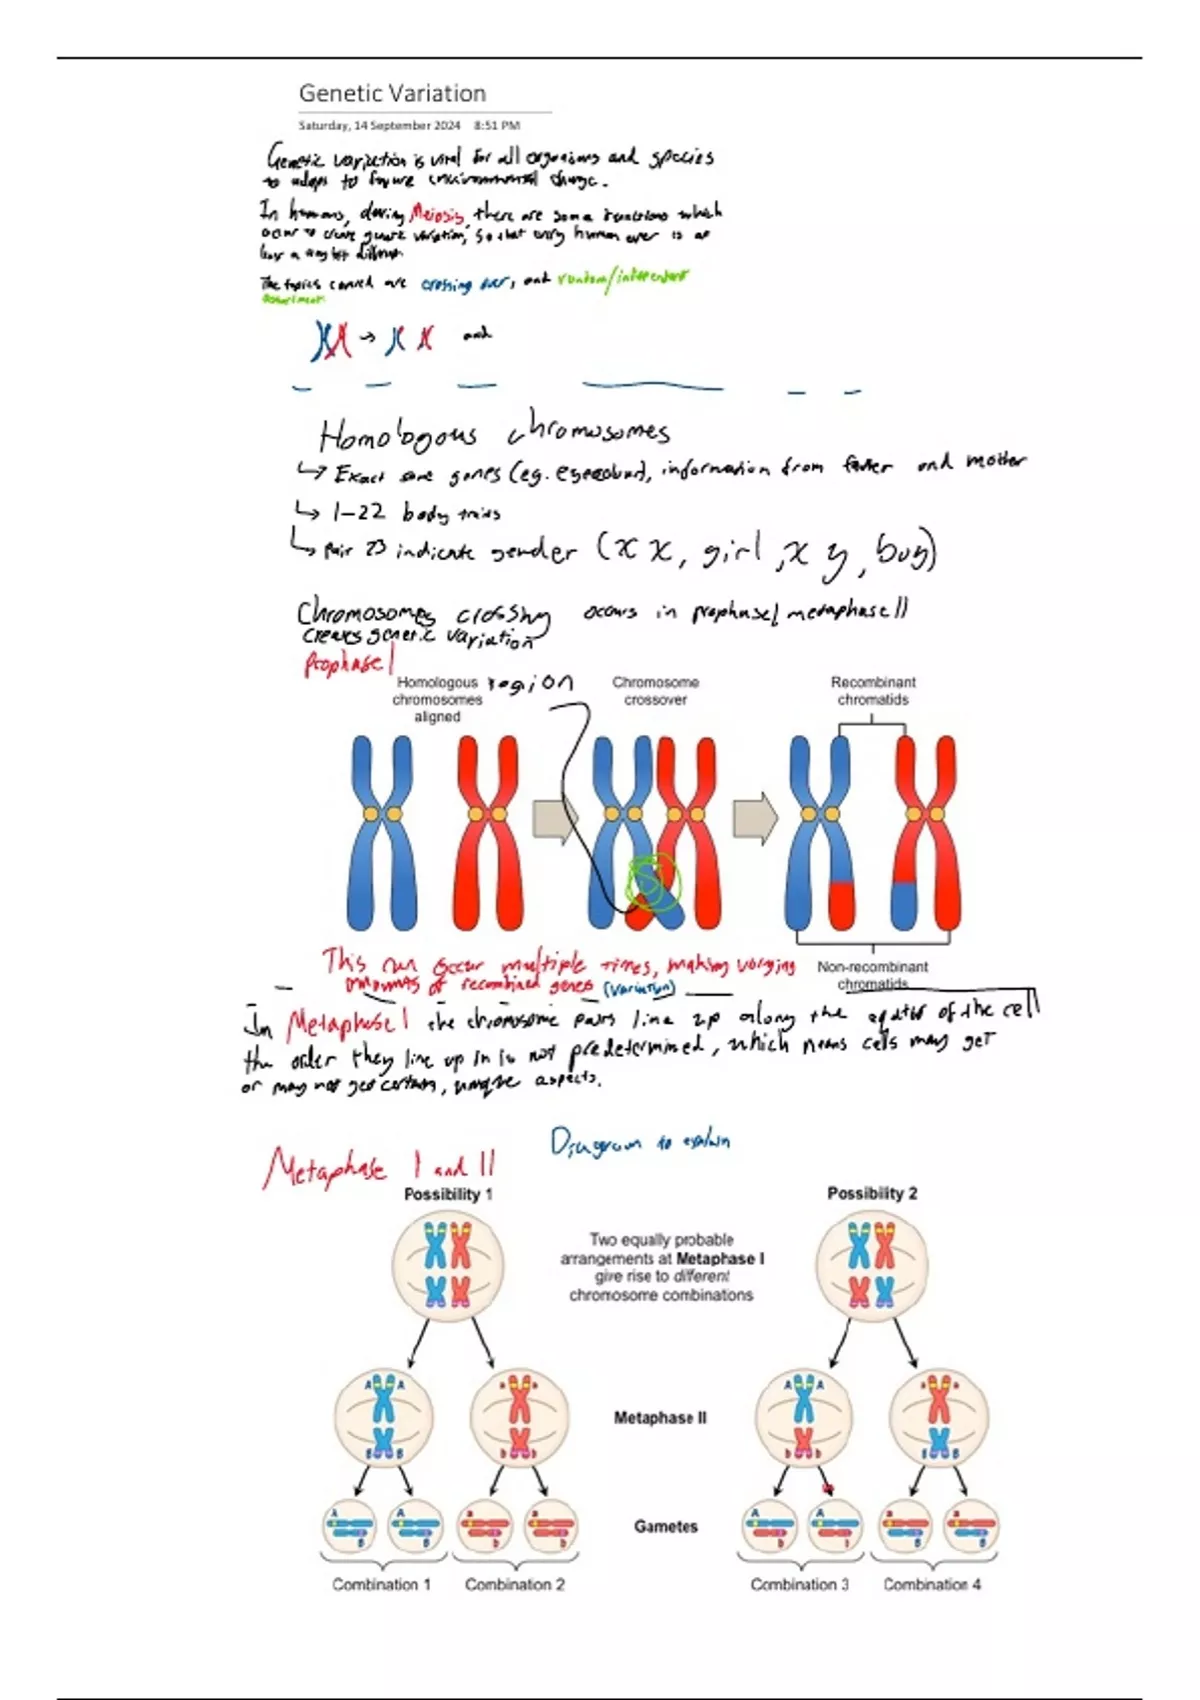 Genetic Variation
Saturday, 14 September 2024 8:51 PM
Genetic variation is vital for all organisms and species
to adapt to future environmental change.
In humans, during Meiosis there are some functions which
occur to create genetic variation, so that every human ever is at
least a tiny bit different
The topics covered are crossing over, and random/independent
assortment
and
Homologous chromosomes
Exact same genes (eg. eyecolour), information from father and mother
1-22 body traits
Pair 23 indicate gender (x x, girl, x y, boy)
Chromosomes crossing occurs in prophase/metaphase II
creates genetic variation
Prophase I
Homologous chromosomes aligned
region
Chromosome crossover
Recombinant chromatids
This can occur multiple times, making varying
amounts of recombined genes (variation)
Non-recombinant chromatids
In Metaphase I the chromosome pairs line up along the equator of the cell
the order they line up in is not predetermined, which means cells may get
or may not get certain, unique aspects.
Diagram to explain
Metaphase I and II
Possibility 1
Possibility 2
Two equally probable
arrangements at Metaphase I
give rise to different
chromosome combinations
A A
a a
A A
a a
Metaphase II
B B
b b
b b
B B
A A a a
A A a a
B B b b
b b B B
Gametes
Combination 1
Combination 2
Combination 3
Combination 4